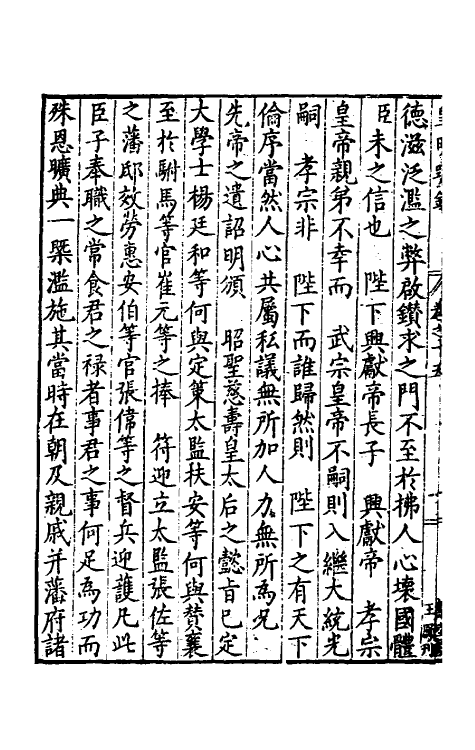 德滋泛濫之弊啟鑚求之門不至於拂人心壞國體
臣未之信也　陛下興獻帝長子　興獻帝　孝宗
皇帝親弟不幸而　武宗皇帝不嗣則入繼大統光
嗣　孝宗非　陛下而誰歸然則　陛下之有天下
倫序當然人心共屬私議無所加人力無所為况
先帝之遺詔明頒　昭聖慈壽皇太后之懿旨已定
大學士楊廷和等何與定策太監扶安等何與賛襄
至於駙馬等官崔元等之捧　符迎立太監張佐等
之藩邸效勞惠安伯等官張偉等之督兵迎護凡此
臣子奉職之常食君之禄者事君之事何足為功而
殊恩曠典一槩濫施其當時在朝及親戚并藩府諸